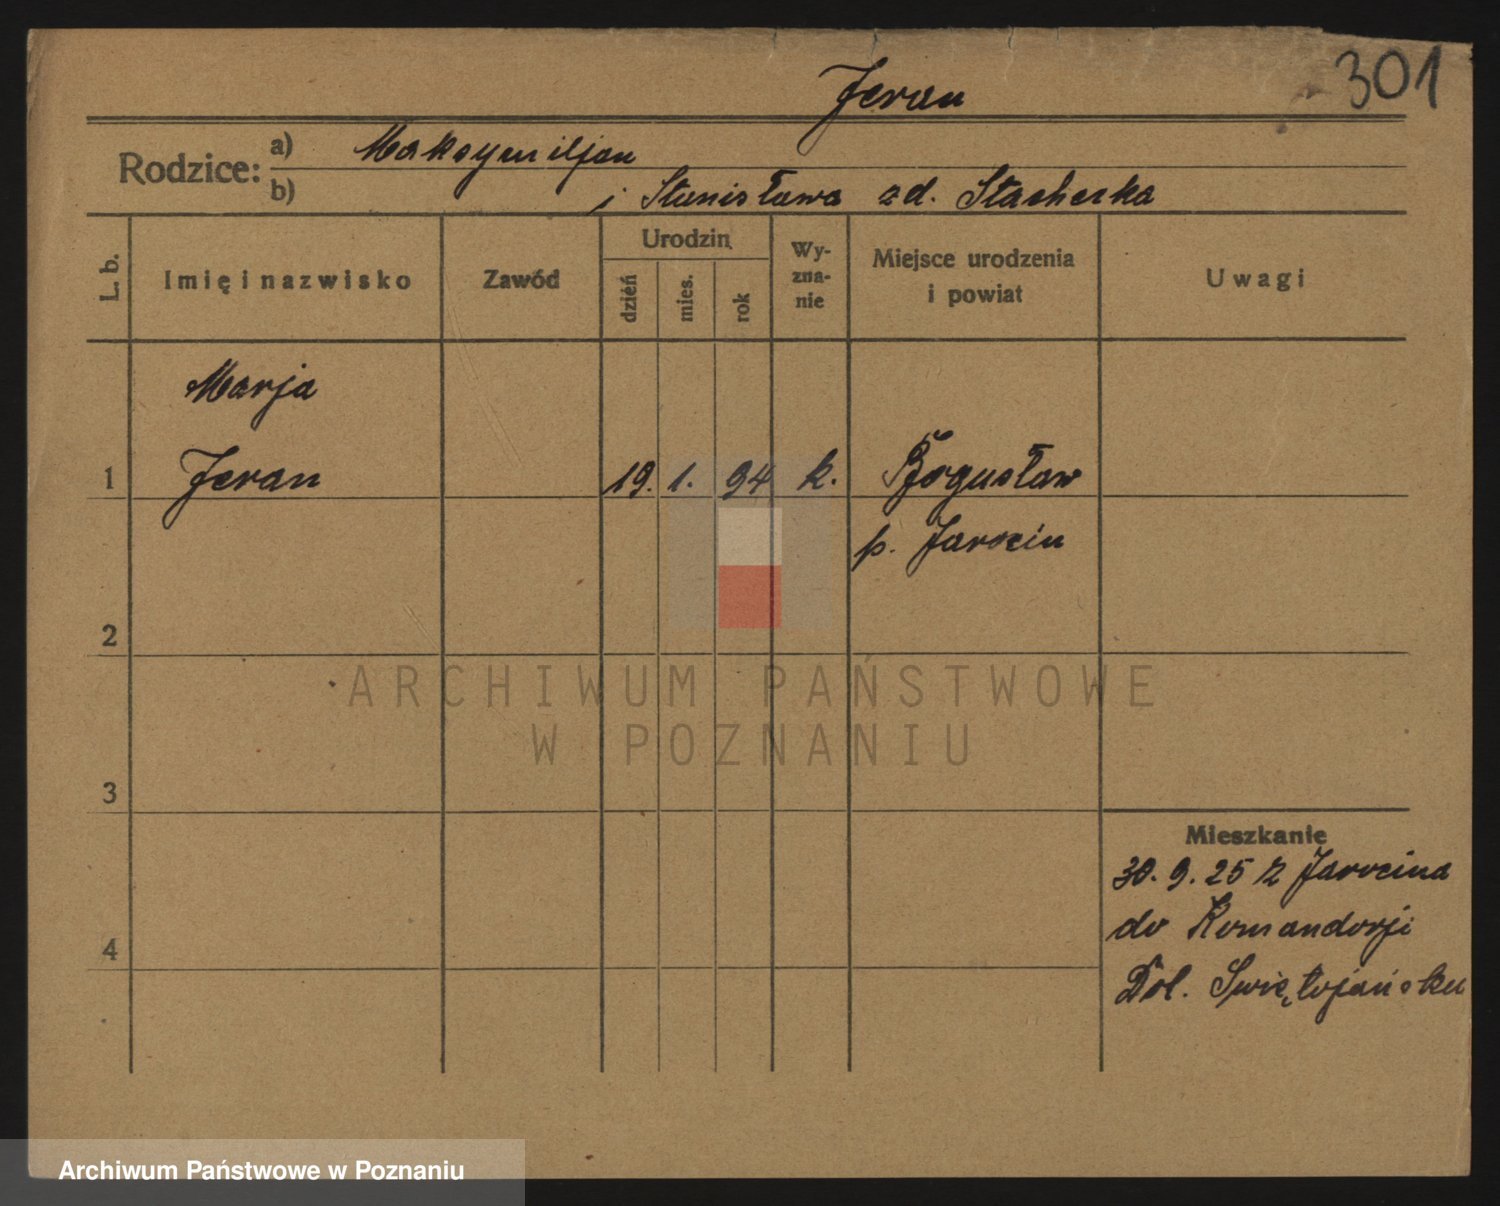 301
Jeran
Rodzice: a) Maksymiljan
b) i Stanisława zd. Stacherka
L. b. Imię i nazwisko Zawód Urodzin Wyznanie Miejsce urodzenia i powiat Uwagi
dzień mies. rok
Marja
1 Jeran 19. 1. 94 k. Bogusław
p. Jarocin
2
3
4
Mieszkanie
30. 9. 25 z Jarocina
do Komandorji
Dol. Świętojańska
ARCHIWUM PAŃSTWOWE
W POZNANIU
Archiwum Państwowe w Poznaniu